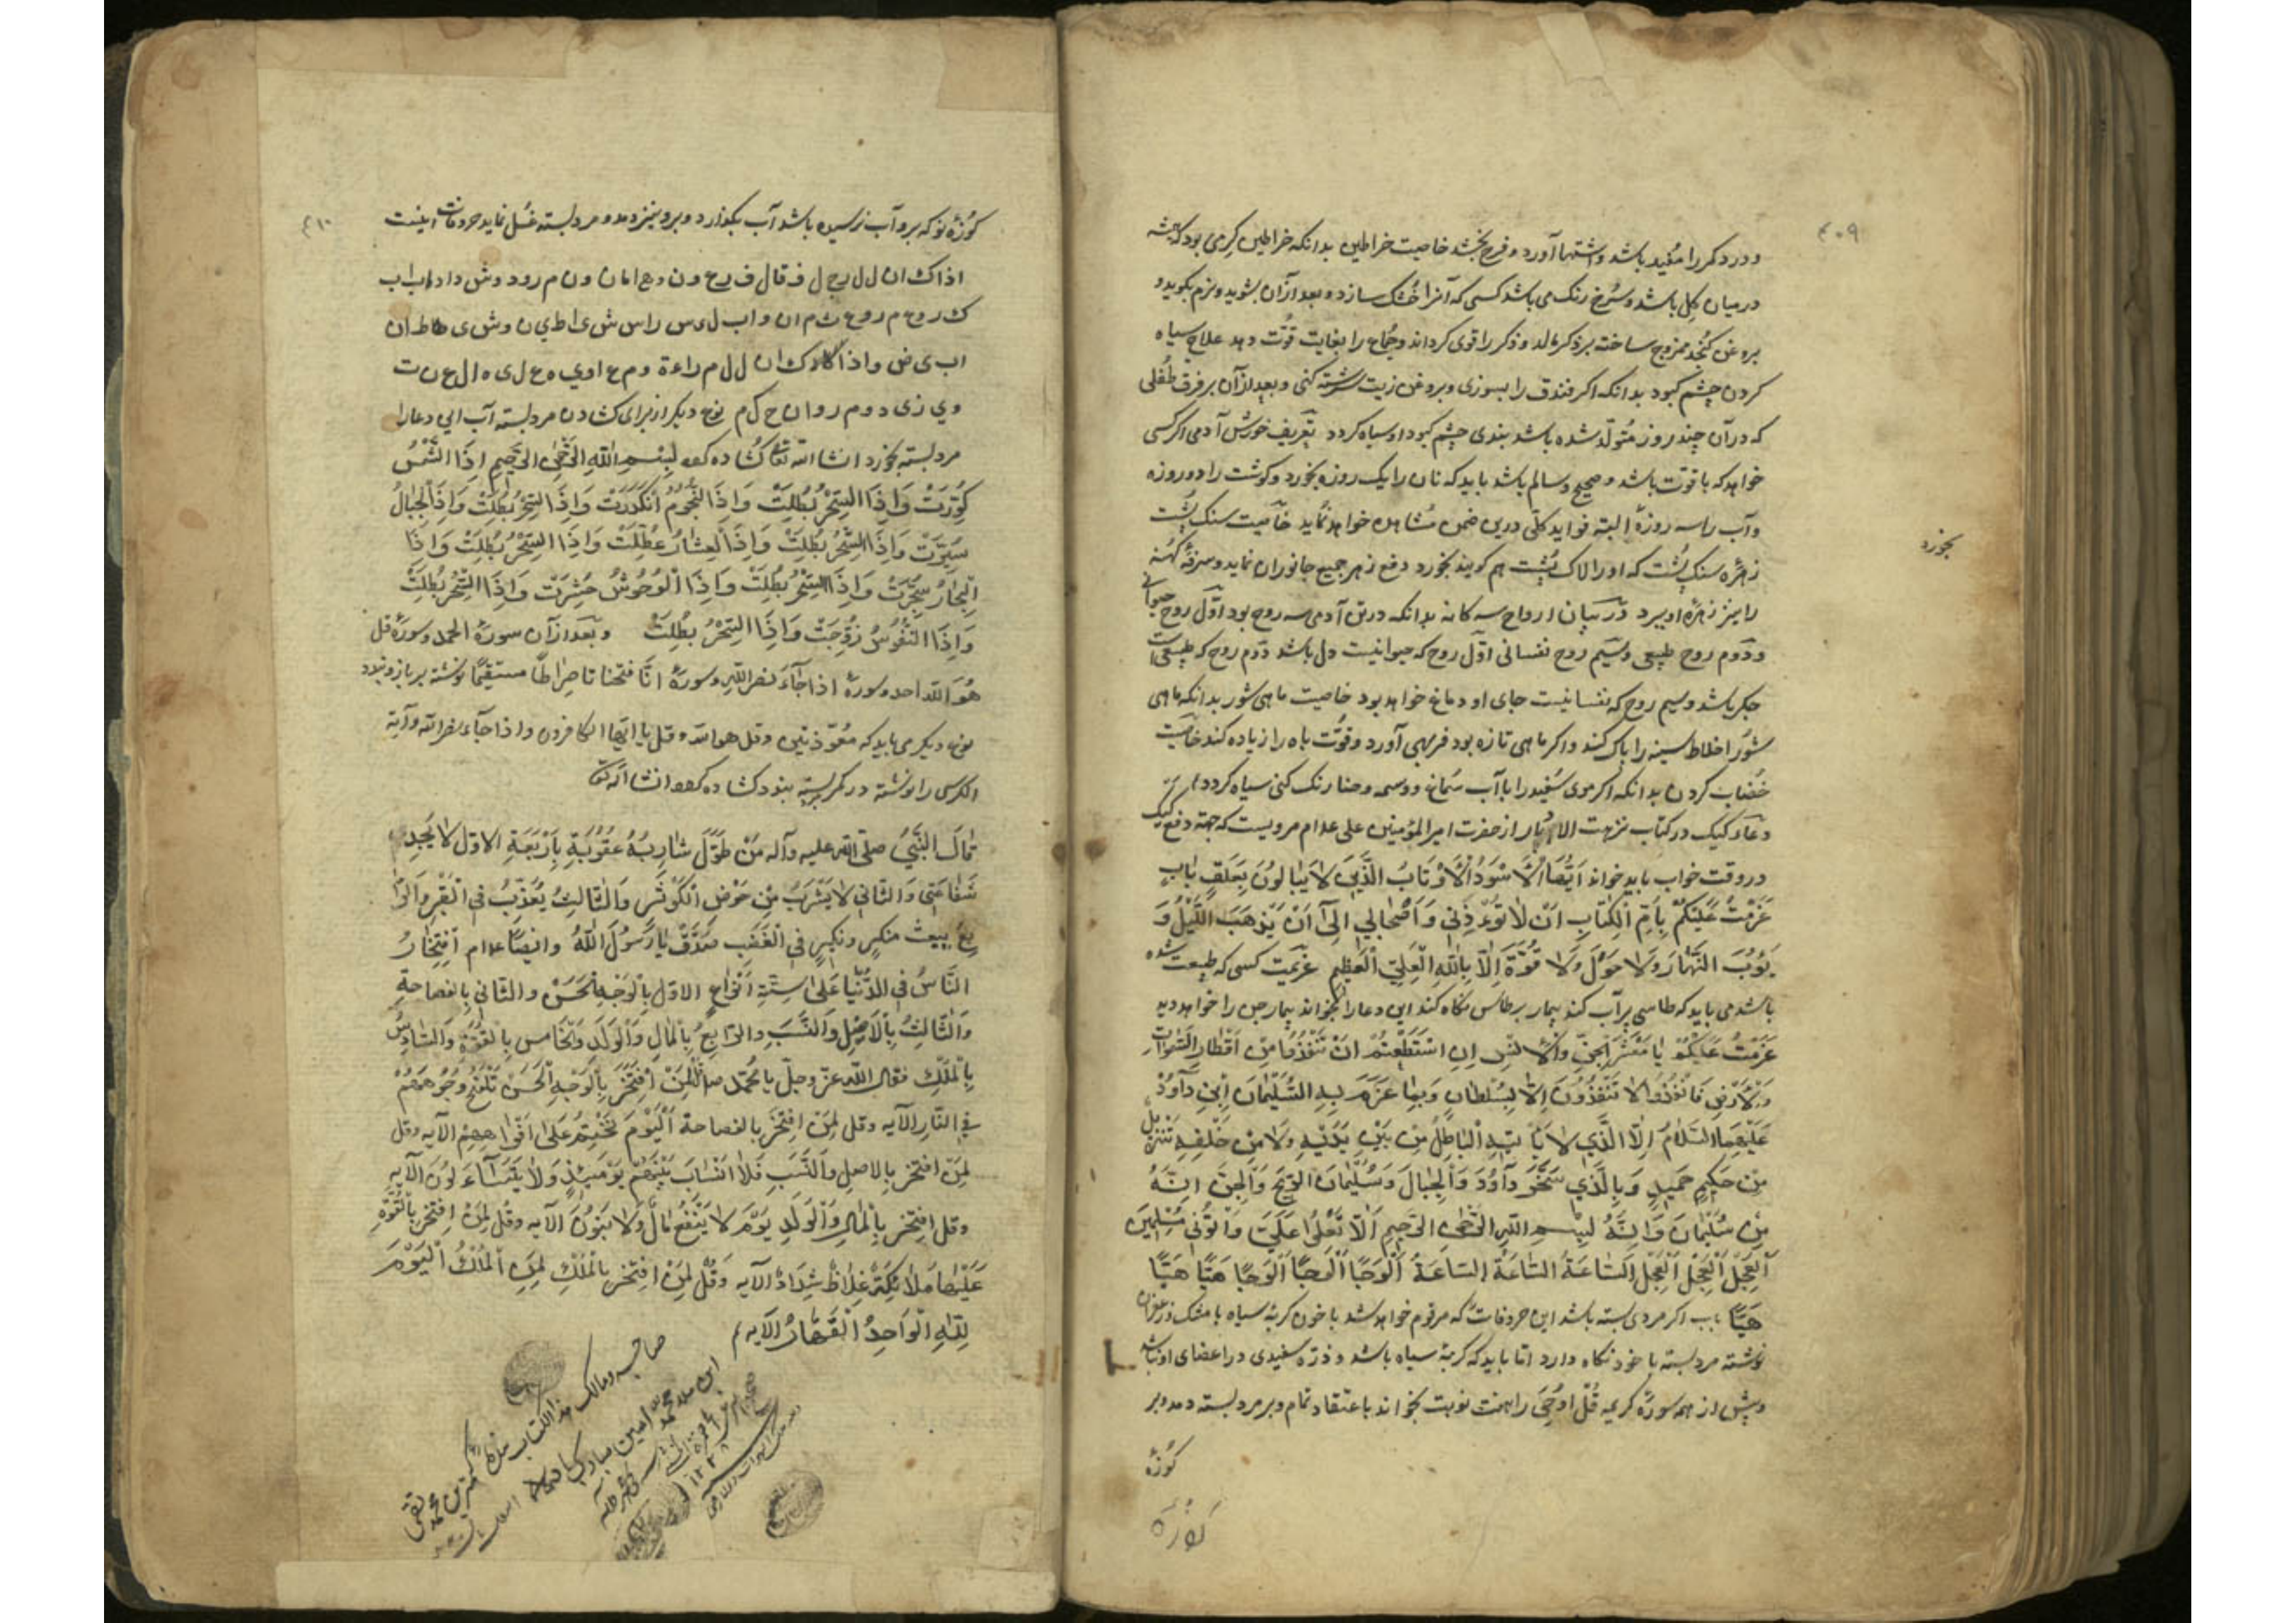 ۴۰۹
و درد کمر را مفید باشد و اشتها آورد و فرح بخشد خاصیت خراطین بدانکه خراطین کرمی بود که همیشه
در میان کل باشد و سرخ رنک می باشد کسی که آنرا خشک سازد و بعد از آن بشوید و نرم بکوبد و
بروغن کنجد ممزوج ساخته بر ذکر مالد و ذکر را قوی کرداند و جماع را بغایت قوّت دهد علاج سیاه
کردن چشم کبود بدانکه اکر فندق را بسوزی و بروغن زیت سرشته کنی و بعد از آن بر فرق طفلی
که در آن چند روز متولّد شده باشد بندی چشم کبود او سیاه کردد تعریف خورش آدمی اکر کسی
خواهد که با قوت باشد و صحیح و سالم باشد باید که نان را یک روزه بخورد و کوشت را دو روزه
بخورد
و آب را سه روزه البته فواید کلّی درین ضمن مشاهده خواهد نماید خاصیت سنک پشت
زهره سنک پشت که او را لاک پشت هم کویند بخورد دفع زهر جمیع جانوران نماید و سرفهٔ کهنه
را نیز زهره او ببرد در بیان ارواح سه کانه بدانکه در تن آدمی سه روح بود اوّل روح حیوانی
و دوم روح طبیعی و سیم روح نفسانی اوّل روح که حیوانیست دل باشد دوم روح که طبیعی است
جکر باشد و سیم روح که نفسانیست جای او دماغ خواهد بود خاصیت ماهی شور بدانکه ماهی
شور اخلاط سینه را پاک کند و اکر ماهی تازه بود فربهی آورد و قوّت باه را زیاده کند خاصیت
خضاب کردن بدانکه اکر موی سفید را با آب سماق و وسمه و حنا رنک کنی سیاه کردد
دعاء کیک در کتاب نزهت الا بار از حضرت امیر المؤمنین علی ع مرویست که جهة دفع کیک
در وقت خواب باید خواند اَیُّهَا الْاَسْوَدُ الْاَوْثَابُ الَّذِی لَا یُبَالُونَ بِغَلَقِ بَابٍ
عَزَمْتُ عَلَیْکُمْ بِاُمِّ الْکِتَابِ اَنْ لَا تُؤْذِنِی وَ اَصْحَابِی اِلَی اَنْ یَذْهَبَ اللَّیْلُ وَ
یَؤُبَ النَّهَارَ وَلَا حَوْلَ وَلَا قُوَّةَ اِلَّا بِاللّٰهِ الْعَلِیِّ الْعَظِیمِ عزیمت کسی که طبیعت شده
باشد می باید که طاسی پر آب کند بیمار بر طاس نکاه کند این دعا را بخواند بیمار جن را خواهد دید
عَزَمْتُ عَلَیْکُمْ یَا مَعْشَرَ الْجِنِّ وَالْاِنْسِ اِنِ اسْتَطَعْتُمْ اَنْ تَنْفُذُوا مِنْ اَقْطَارِ السَّمٰوَاتِ
وَالْاَرْضِ فَانْفُذُوا لَا تَنْفُذُونَ اِلَّا بِسُلْطَانٍ وَ بِمَا عَزَمَ بِهِ السُّلَیْمَانَ اِبْنِ دَاوُدَ
عَلَیْهِمَا السَّلَامُ اِلَّا الَّذِی لَا یَاْتِیهِ الْبَاطِلُ مِنْ بَیْنِ یَدَیْهِ وَلَا مِنْ خَلْفِهِ تَنْزِیلٌ
مِنْ حَکِیمٍ حَمِیدٍ وَ بِالَّذِی سَخَّرَ دَاوُدَ وَالْجِبَالَ وَ سُلَیْمَانَ الرِّیحَ وَالْجِنَّ اِنَّهُ
مِنْ سُلَیْمَانَ وَ اِنَّهُ بِسْمِ اللّٰهِ الرَّحْمٰنِ الرَّحِیمِ اَلَّا تَعْلُوا عَلَیَّ وَأْتُونِی مُسْلِمِینَ
اَلْعَجَلْ اَلْعَجَلْ اَلْعَجَلْ اَلسَّاعَةَ اَلسَّاعَةَ اَلسَّاعَةَ اَلْوَحَا اَلْوَحَا اَلْوَحَا هَیَّا هَیَّا
هَیَّا باب اکر مردی بسته باشد این حروفات که مرقوم خواهد شد با خون کربهٔ سیاه با مشک و زعفران
نوشته مرد بسته با خود نکاه دارد امّا باید که کربهٔ سیاه باشد و ذرّه سفیدی در اعضای او نباشد
و پیش از همه سورهٔ کریمه قُلْ اُوحِیَ را هفت نوبت بخواند باعتقاد تمام و بر مرد بسته دمد و بر
کوزهٔ
کوزه
۴۱۰
کوزهٔ نو که برو آب نرسیده باشد آب بکذارد و برو نیز دمد و مرد بسته غسل نماید حروفات اینست
اذاک ان ل ل رج ل ف قال ف رح ون و ه ام ان و ن م رود و ش داد
اب ی ض و اذا ک ان ل ل م راءة و م ع اوی ه ع ل ی ه ال ع ن ت
و ی زی د و م روان ح ک م نوع دیکر از برای کشادن مرد بسته آب این دعا را
مرد بسته بخورد انشاالله تعالی کشاده کردد بِسْمِ اللّٰهِ الرَّحْمٰنِ الرَّحِیمِ اِذَا الشَّمْسُ
کُوِّرَتْ وَ اِذَا السِّحْرُ بُطِلَتْ وَ اِذَا النُّجُومُ انْکَدَرَتْ وَ اِذَا السِّحْرُ بُطِلَتْ وَ اِذَا الْجِبَالُ
سُیِّرَتْ وَ اِذَا السِّحْرُ بُطِلَتْ وَ اِذَا الْعِشَارُ عُطِّلَتْ وَ اِذَا السِّحْرُ بُطِلَتْ وَ اِذَا
الْبِحَارُ سُجِّرَتْ وَ اِذَا السِّحْرُ بُطِلَتْ وَ اِذَا الْوُحُوشُ حُشِرَتْ وَ اِذَا السِّحْرُ بُطِلَتْ
وَ اِذَا النُّفُوسُ زُوِّجَتْ وَ اِذَا السِّحْرُ بُطِلَتْ و بعد از آن سورهٔ الحمد و سورهٔ قل
هُوَ اللّٰه احد و سورهٔ اذا جَآءَ نصر اللّٰهِ و سورهٔ انّا فتحنا تا صِراطًا مستقیمًا نوشته بر بازو بندد
نوع دیکر می باید که معوّذتین و قل هو الله و قل یا ایها الکافرون و اذا جاء نصر الله و آیة
الکرسی را نوشته در کمر بسته بندد کشاده کردد انشا الله تعالی
قَالَ النَّبِیُّ صلّی الله علیه وآله مَنْ طَوَّلَ شَارِبَهُ عُقُوبَةٍ بِاَرْبَعَةٍ الاوّل لَا یَجِدُ
شَفَاعَتِی وَالثَّانِی لَا یَشْرَبُ مِنْ حَوْضِ الْکَوْثَرِ وَالثَّالِثُ یُعَذَّبُ فِی الْقَبْرِ وَالرَّا
بِعُ یبعث منکرٍ و نکیرٍ فی الْغَضَبِ صَدَّقَ یَا رَسُولَ اللّٰهِ وایضًا ع م اِفْتِخَارُ
النَّاسُ فِی الدُّنْیَا عَلَی سِتَّةِ اَنْوَاعٍ الاوّل بِالْوَجْهِ الْحَسَنْ وَالثَّانِی بِالفصاحةِ
وَالثَّالِثُ بِالْاَصْلِ وَالنَّسَبِ وَالرَّابِعُ بِالْمَالِ وَالْوَلَدِ وَالْخَامِسُ بِالْقُوَّةِ وَالسَّادِسُ
بِالْمُلْکِ فقال اللّٰه عزّ وجلّ یا محمّد قل لِمَنْ اِفْتَخَرَ بِالْوَجْهِ الْحَسَنْ تَلْفَحُ وُجُوهَهُمْ
فِی النَّارِ الآیه وقل لِمَنْ اِفْتَخَرَ بالفصاحة اَلْیَوْمَ نَخْتِمُ عَلَی اَفْوَاهِهِمْ الآیه وقل
لِمَنْ افتخر بِالاصلِ وَالنَّسَبِ فَلَا اَنْسَابَ بَیْنَهُمْ یَوْمَئِذٍ وَلَا یَتَسَآءَلُونَ الآیه
وقل افتخر بِالْمَالِ وَالْوَلَدِ یَوْمَ لَا یَنْفَعُ مَالٌ وَلَا بَنُونَ الآیه وقل لِمَنْ افتخر بِالْقُوَّةِ
عَلَیْهَا مَلَائِکَةٌ غِلَاظٌ شِدَادٌ الآیه وَقُلْ لِمَنْ افتخر بِالْمُلْکِ لِمَنِ الْمُلْکُ الْیَوْمَ
لِلّٰهِ الْوَاحِدُ الْقَهَّارُ الآیه
صاحبه ومالک هذا الکتاب کمترین محمد تقی
ابن ملا محمد امین